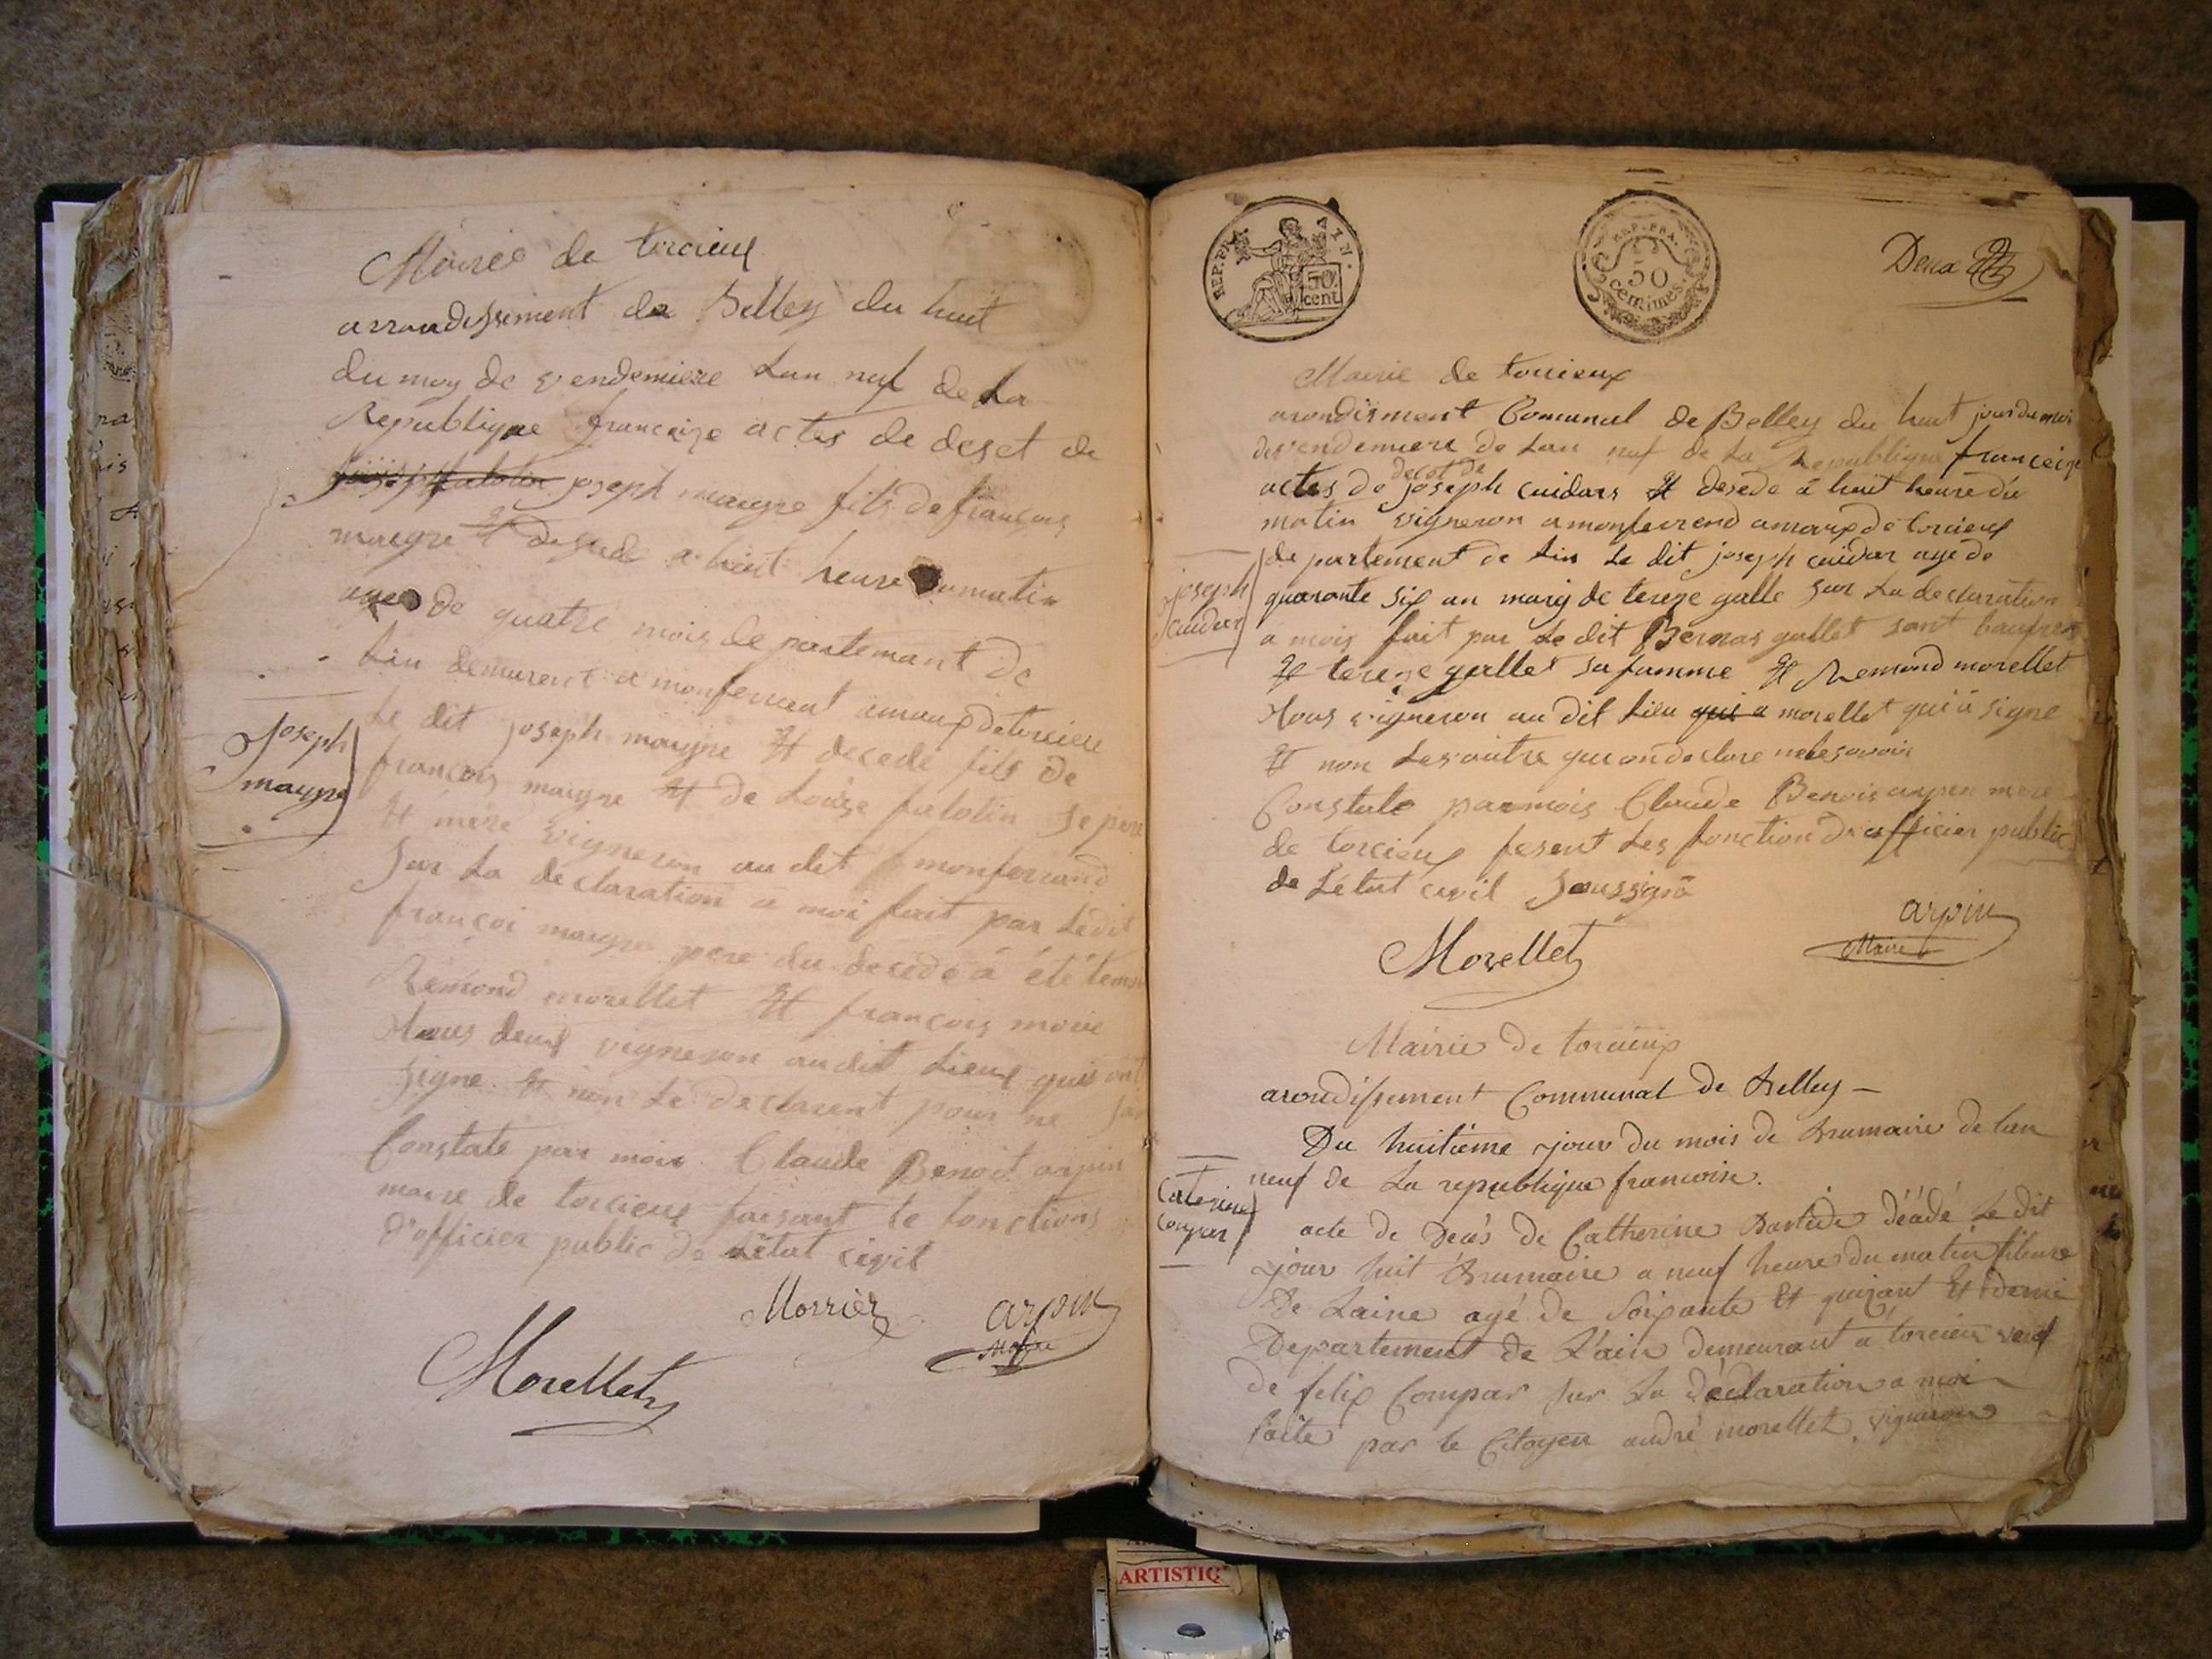 Mairie de torcieux
arrondissement de Belley du huit
du moy de vendemiere Lan neuf de La
Republique francaize actes de deset de
joseph maigre fils de françois
maigre Et desede a huit heure du matin
agé de quatre mois departemant de
Lin demurent a monferrant amaux de torcieu
Le dit joseph maigre Et decede fils de
françois maigre Et de Louise falotin se pere
Et mere vigneron au dit monferrand
Sur La declaration a moi fait par Ledit
françoi maigre pere du decede à été temoin
Remond morellet Et françois
Tous deux vigneron audit Lieux qui ont
signe Et non Le declarent pour ne
Constate par moi Claude Benoit arpin
maire de torcieux faisant le fonctions
d'officier public de Létat civil
Morrier
arpin
Maire
Morellet
Joseph
maigre
REP. FRA.
AIN.
50
cent
REP. FRA.
50
centimes
Deux
Mairie de torcieux
arondisment Comunal de Belley du huit jour du mois
de vendemiere de Lan nuf de La Republique francaize
deset de
actes de joseph cuidars Et desede a huit heure du
matin vigneron a monferrend amaux de torcieux
departement de Lin Le dit joseph cuidar age de
quarante six an mary de tereze galle sur La declaration
a mois fait par Le dit Bernas gallet sont baufrere
Et tereze gallet sa famme Et Remond morellet
Tous vigneron au dit Lieu qui a morellet qui a signe
Et non Les autre qui on declare ne le savoir
Constate par mois Claude Benois arpin mere
de torcieux fesent Les fonction d'officier public
de Létat civil Soussigné
arpin
Maire
Morellet
joseph
cuidar
Mairie de torcieux
arondissement Communal de Belley —
Du huitième jour du mois de Brumaire de lan
neuf de La republique francoise.
acte de décés de Catherine Bastide décédé Le dit
jour huit Brumaire a neuf heure du matin fileuse
De Laine agé de soixante Et quinzant Et demi
Departement de L'ain demeurant a torcieu veuf
de felix Compar sur La déclaration a moi
faite par le Citoyen andré morellet vigneron
Caterine
Compar
ARTISTIQ